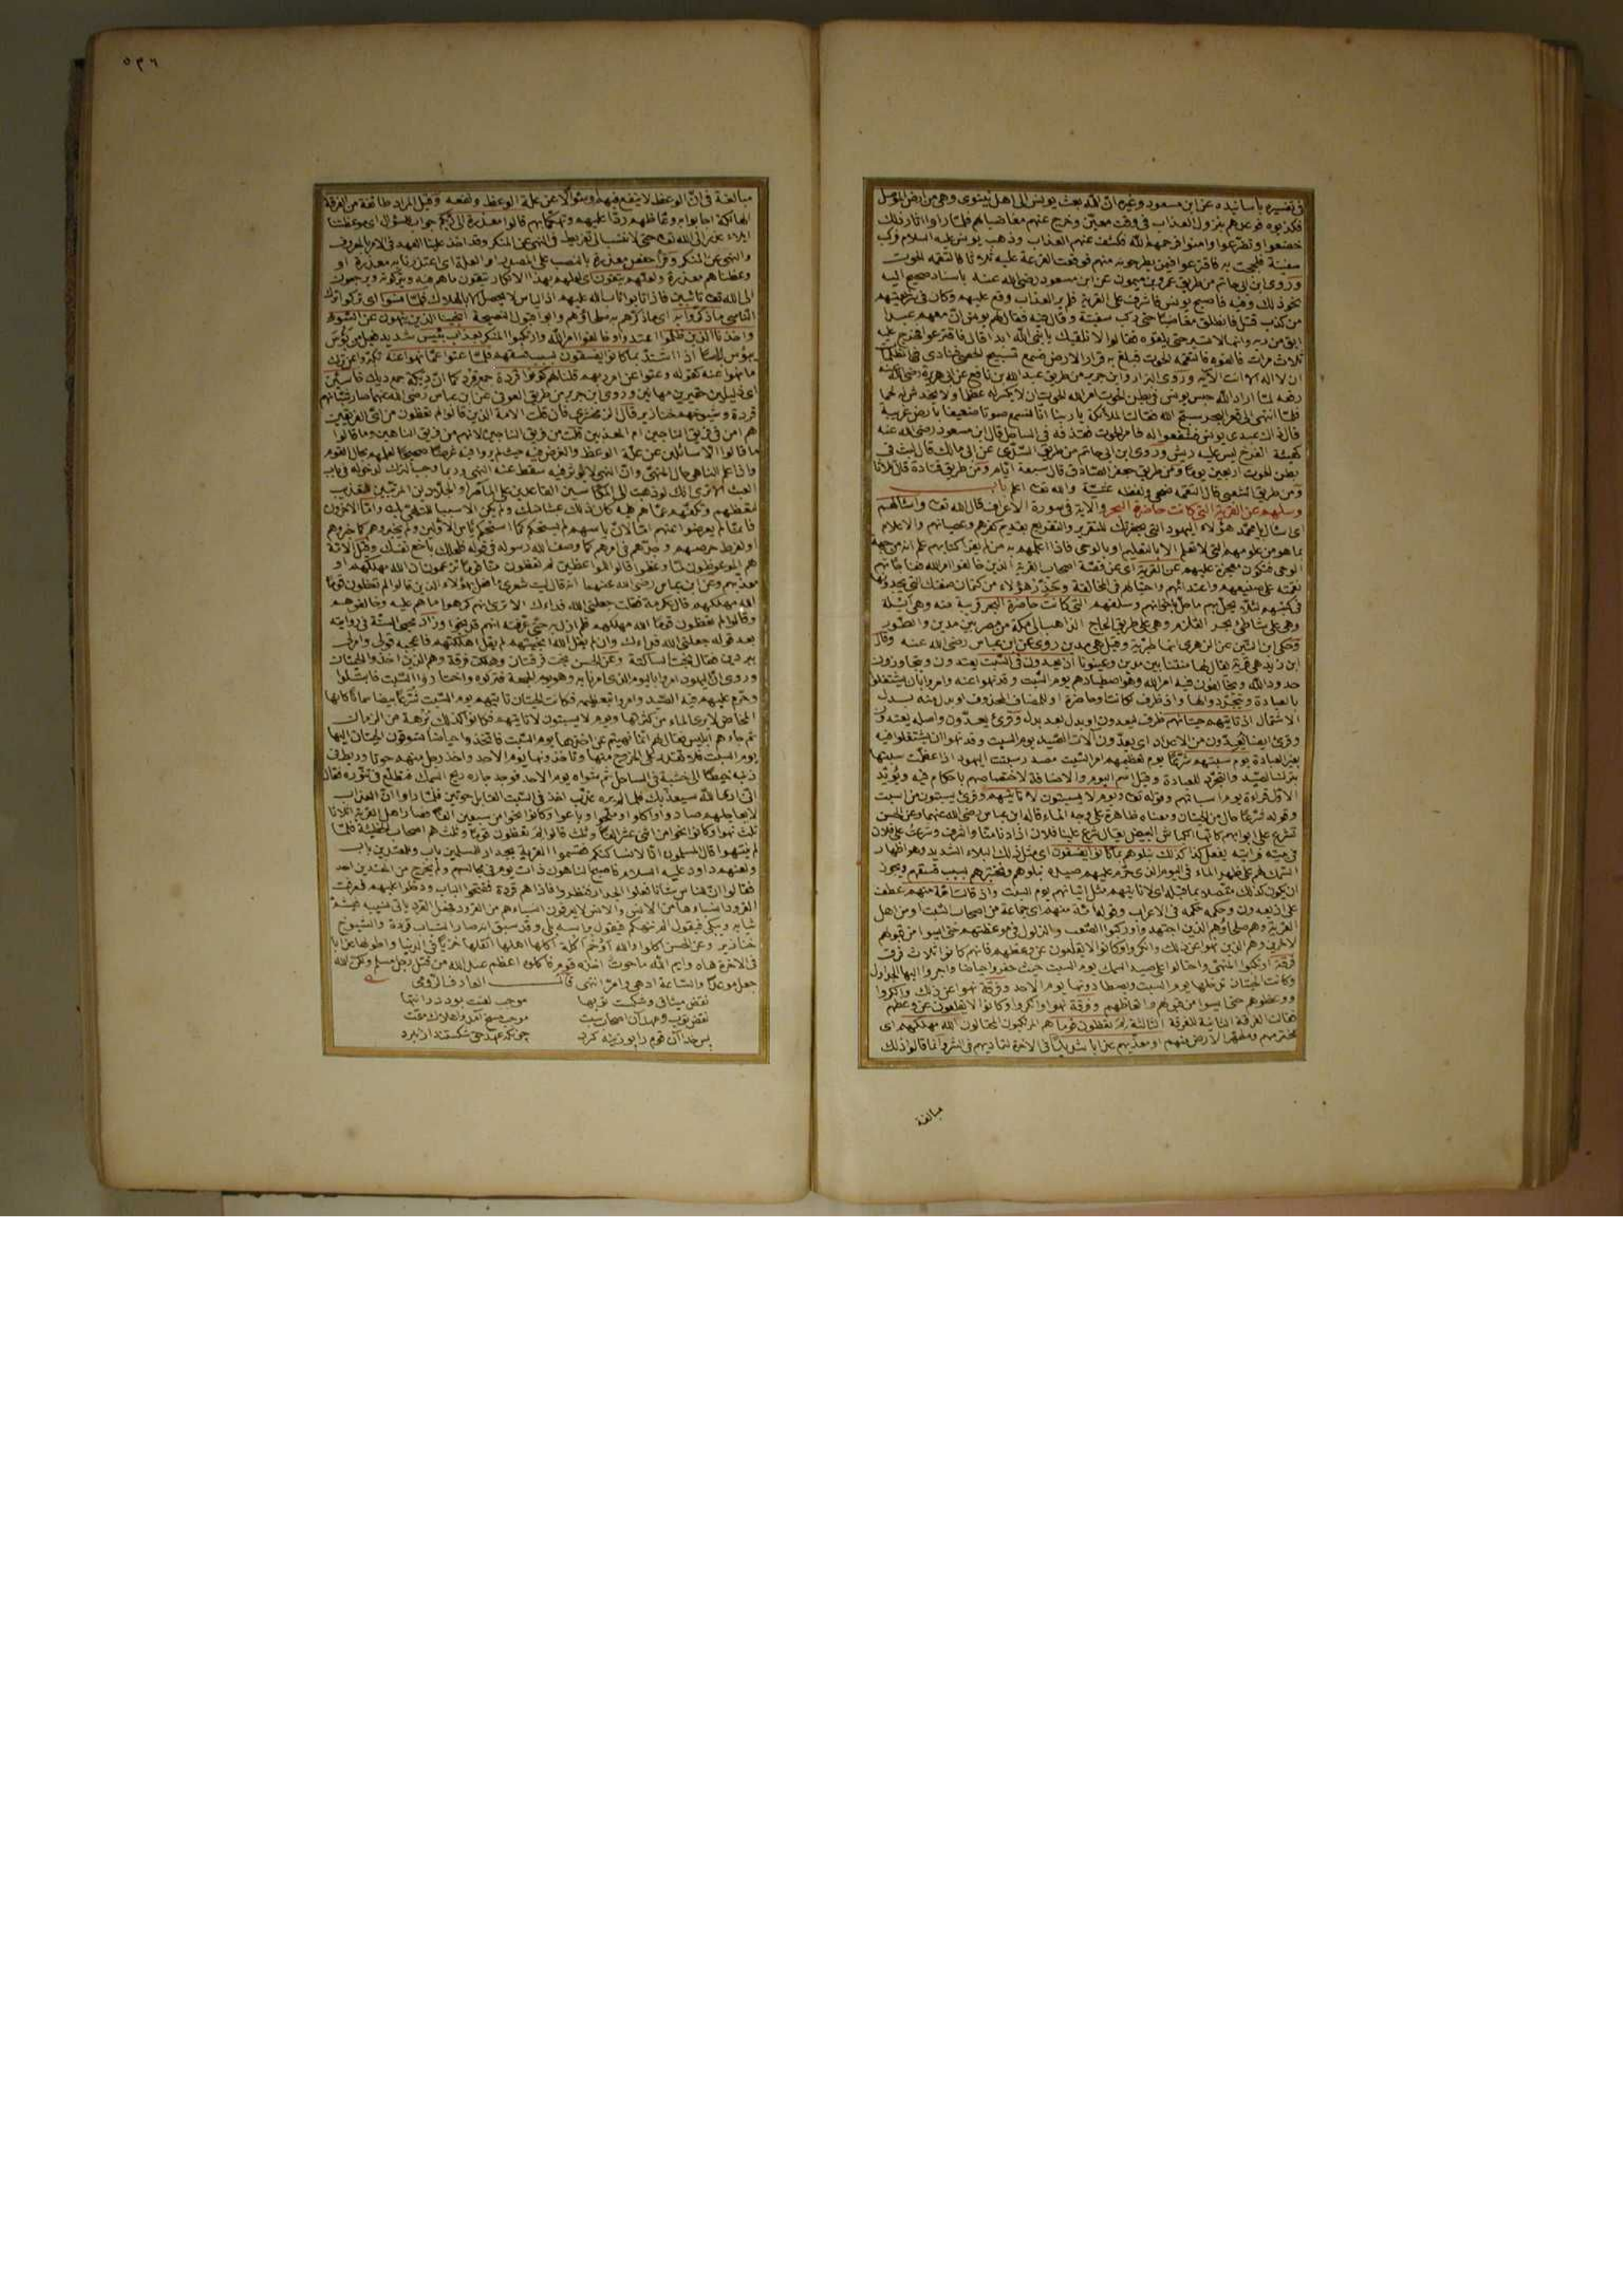 في تفسيره بأسانيده عن ابن مسعود وغيره ان الله بعث يونس الى اهل نينوى وهي من ارض الموصل
فكذبوه فوعدهم بنزول العذاب في وقت معين وخرج عنهم مغاضبا لهم فلما راوا اثار ذلك
خضعوا وتضرعوا وامنوا فرحمهم الله فكشف عنهم العذاب وذهب يونس عليه السلام فركب
سفينة فلججت به فاقترعوا فيمن يطرحونه منهم فوقعت القرعة عليه ثلاثا فالتقمه الحوت
وروى ابن ابي حاتم من طريق عمرو بن ميمون عن ابن مسعود رضي الله عنه باسناد صحيح اليه
نحو ذلك وفيه فاصبح يونس فاشرف على القرية فلم ير العذاب وقع عليهم وكان في شريعتهم
من كذب قتل فانطلق مغاضبا حتى ركب سفينة وقال فيه فقال لهم يونس ان معهم عبدا
ابق من ربه وانها لا تسير حتى يلقوه فقالوا لا نلقيك يا نبي الله ابدا قال فاقترعوا فخرج عليه
ثلاث مرات فالقوه فالتقمه الحوت فبلغ به قرار الارض فسمع تسبيح الحصى فنادى في الظلمات
ان لا اله الا انت الآية وروى البزار وابن جرير من طريق عبد الله بن نافع عن ابي هريرة رضي الله عنه
رفعه لما اراد الله حبس يونس في بطن الحوت امر الله الحوت ان لا يكسر له عظما ولا يخدش له لحما
فلما انتهى الى قعر البحر سبح الله فقالت الملائكة يا ربنا انا نسمع صوتا ضعيفا بارض غريبة
قال ذاك عبدي يونس فشفعوا له فامر الحوت فقذفه في الساحل قال ابن مسعود رضي الله عنه
كهيئة الفرخ ليس عليه ريش وروى ابن ابي حاتم من طريق السدي عن ابي مالك قال لبث في
بطن الحوت اربعين يوما ومن طريق جعفر الصادق قال سبعة ايام ومن طريق قتادة قال ثلاثا
ومن طريق الشعبي قال التقمه ضحى ولفظه عشية والله تعا اعلم
وسلهم عن القرية التي كانت حاضرة البحر والآية في سورة الاعراف قال الله تعا واسالهم
اى اسال يا محمد هؤلاء اليهود الذين بحضرتك للتقرير والتقريع بقديم كفرهم وعصيانهم والاعلام
بما هو من علومهم التي لا تعلم الا بالتعليم او بالوحي فاذا اعلمهم به من لم يقرأ كتابهم علم انه من جهة
الوحي فتكون معجزة عليهم عن القرية اى عن قصة اصحاب القرية الذين خالفوا امر الله ففاجأتهم
نقمته على صنيعهم واعتدائهم واحتيالهم في المخالفة وحذر هؤلاء من كتمان صفتك التي يجدونها
في كتبهم لئلا يحل بهم ما حل باخوانهم وسلفهم التي كانت حاضرة البحر قريبة منه وهي ايلة
وهي على شاطئ بحر القلزم وهي على طريق الحاج الذاهب الى مكة من مصر بين مدين والطور
وحكى ابن التين عن الزهري انها طبرية وقيل هي مدين روى عن ابن عباس رضي الله عنه وقال
ابن زيد هي قرية يقال لها مقنا بين مدين وعينونا اذ يعدون في السبت يعتدون ويتجاوزون
حدود الله ويخالفون فيه امر الله وهو اصطيادهم يوم السبت وقد نهوا عنه وامروا بان يشتغلوا
بالعبادة ويتجردوا لها واذ ظرف لكانت او حاضرة او للمضاف المحذوف او بدل منه بدل
الاشتمال اذ تاتيهم حيتانهم ظرف ليعدون او بدل بعد بدل وقرئ يعدون واصله يعتدون
وقرئ ايضا يعدون من الاعداد اى يعدون آلات الصيد يوم السبت وقد نهوا ان يشتغلوا فيه
بغير العبادة يوم سبتهم شرعا يوم تعظيمهم امر السبت مصدر سبتت اليهود اذا عظمت سبتها
بترك الصيد والتجرد للعبادة وقيل اسم اليوم والاضافة لاختصاصهم باحكام فيه ويؤيد
الاول قراءة يوم اسباتهم وقوله تعا ويوم لا يسبتون لا تاتيهم وقرئ يسبتون من اسبت
وقوله شرعا حال من الحيتان ومعناه ظاهرة على وجه الماء قاله ابن عباس رضي الله عنهما وعن الحسن
تشرع على ابوابهم كانها الكباش البيض يقال شرع علينا فلان اذا دنا منا واشرف وشرعت على فلان
في بيته فرايته يفعل كذا كذلك نبلوهم بما كانوا يفسقون اى مثل ذلك البلاء الشديد وهو اظهار
السمك لهم على ظهر الماء في اليوم الذي حرم عليهم صيده نبلوهم ونختبرهم بسبب فسقهم ويجوز
ان يكون كذلك متصلا بما قبله اى لا تاتيهم مثل اتيانهم يوم السبت واذ قالت امة منهم عطف
على اذ يعدون وحكمه حكمه في الاعراب وقوله امة منهم اى جماعة من اصحاب السبت او من اهل
القرية وهم صلحاؤهم الذين اجتهدوا وركبوا الصعب والذلول في موعظتهم حتى ايسوا من قبولهم
لآخرين وهم الذين نهوا عن ذلك وانكروا وكانوا لا يقلعون عن وعظهم فانهم كانوا ثلاث فرق
فرقة ارتكبوا المنهي واحتالوا على صيد السمك يوم السبت حيث حفروا حياضا واجروا اليها الجداول
وكانت الحيتان تدخلها يوم السبت ويصطادونها يوم الاحد وفرقة نهوا عن ذلك وانكروا
ووعظوهم حتى ايسوا من قبولهم واتعاظهم وفرقة نهوا وانكروا وكانوا لا يقلعون عن وعظهم
فقالت الفرقة الثانية للفرقة الثالثة لم تعظون قوما هم المرتكبون المحتالون الله مهلكهم اى
مخترمهم ومطهر الارض منهم او معذبهم عذابا شديدا في الاخرة لتماديهم في الشر وانما قالوا ذلك
مبالغة
٥٣٦
مبالغة في ان الوعظ لا ينفع فيهم او سؤالا عن علة الوعظ ونفعه وقيل المراد طائفة من الفرقة
الهالكة اجابوا به وعاظهم ردا عليهم وتهكما بهم قالوا معذرة الى ربكم جواب للسؤال اى موعظتنا
ابلاء عذر الى الله تعا حتى لا ننسب الى تفريط في النهي عن المنكر وقد اخذ علينا العهد في الامر بالمعروف
والنهي عن المنكر وقرأ حفص معذرة بالنصب على المصدر او العلة اى اعتذرنا به معذرة او
وعظناهم معذرة ولعلهم يتقون اى لعلهم بهذا الانكار يتقون ما هم فيه ويتركونه ويرجعون
الى الله تعا تائبين فاذا تابوا تاب الله عليهم اذ الياس لا يحصل الا بالهلاك فلما نسوا اى تركوا ترك
الناسي ما ذكروا به اى ما ذكرهم به صلحاؤهم وابوا قبول النصيحة انجينا الذين ينهون عن السوء
واخذنا الذين ظلموا اعتدوا وخالفوا امر الله وارتكبوا المنكر بعذاب بئيس شديد فعيل من بؤس
يبؤس بأسا اذا اشتد بما كانوا يفسقون بسبب فسقهم فلما عتوا عما نهوا عنه تكبروا عن ترك
ما نهوا عنه كقوله وعتوا عن امر ربهم قلنا لهم كونوا قردة جمع قرد كما ان ديكة جمع ديك خاسئين
اى ذليلين حقيرين مهانين وروى ابن جرير من طريق العوفي عن ابن عباس رضي الله عنهما صار شبانهم
قردة وشيوخهم خنازير قال الزمخشري فان قلت الامة الذين قالوا لم تعظون من اى الفريقين
هم امن فريق الناجين ام المعذبين قلت من فريق الناجين لانهم من فريق الناهين وما قالوا
ما قالوا الا سائلين عن علة الوعظ والغرض فيه حيث لم يروا فيه غرضا صحيحا لعلمهم بحال القوم
واذا علم الناهي حال المنهي وان النهي لا يؤثر فيه سقط عنه النهي وربما وجب الترك لدخوله في باب
العبث الا ترى انك لو ذهبت الى المكاسين القاعدين على المآصر او الجلادين المرتبين للتعذيب
لتعظهم وتكفهم عما هم فيه كان ذلك عبثا منك ولم يكن الا سببا للتلهي بك واما الآخرون
فانما لم يعرضوا عنهم اما لان ياسهم لم يستحكم كما استحكم ياس الاولين ولم يخبروهم كما خبروهم
او لفرط حرصهم وجدهم في امرهم كما وصف الله رسوله في قوله فلعلك باخع نفسك وقيل الامة
هم الموعوظون لما وعظوا قالوا للواعظين لم تعظون منا قوما تزعمون ان الله مهلكهم او
معذبهم وعن ابن عباس رضي الله عنهما انه قال ليت شعري ما فعل بهؤلاء الذين قالوا لم تعظون قوما
الله مهلكهم قال عكرمة فقلت جعلني الله فداءك الا ترى انهم كرهوا ما هم عليه وخالفوهم
وقالوا لم تعظون قوما الله مهلكهم فلم ازل به حتى عرفته انهم قد نجوا وزاد محيى السنة في روايته
بعد قوله جعلني الله فداءك وان لم يقل الله انجيتهم لم يقل اهلكتهم فاعجبه قولي وامر لي
ببردين فقال نجت الساكتة وعن الحسن نجت فرقتان وهلكت فرقة وهم الذين اخذوا الحيتان
وروى ان اليهود امروا باليوم الذي امرنا به وهو يوم الجمعة فتركوه واختاروا السبت فابتلوا
وحرم عليهم فيه الصيد وامروا بتعظيمه فكانت الحيتان تاتيهم يوم السبت شرعا بيضا سمانا كانها
المخاض لا يرى الماء من كثرتها ويوم لا يسبتون لا تاتيهم فكانوا كذلك برهة من الزمان
ثم جاءهم ابليس فقال لهم انما نهيتم عن اخذها يوم السبت فاتخذوا حياضا تسوقون الحيتان اليها
يوم السبت فلا تقدر على الخروج منها وتاخذونها يوم الاحد واخذ رجل منهم حوتا وربط في
ذنبه خيطا الى خشبة في الساحل ثم شواه يوم الاحد فوجد جاره ريح السمك فتطلع في تنوره فقال
اني ارى الله سيعذبك فلما لم يره عذب اخذ في السبت القابل حوتين فلما راوا ان العذاب
لا يعاجلهم صادوا واكلوا وملحوا وباعوا وكانوا نحوا من سبعين الفا فصار اهل القرية اثلاثا
ثلث نهوا وكانوا نحوا من اثنى عشر الفا وثلث قالوا لم تعظون قوما وثلث هم اصحاب الخطيئة فلما
لم ينتهوا قال المسلمون انا لا نساكنكم فقسموا القرية بجدار للمسلمين باب وللمعتدين باب
ولعنهم داود عليه السلام فاصبح الناهون ذات يوم في مجالسهم ولم يخرج من المعتدين احد
فقالوا ان للناس شانا فعلوا الجدار فنظروا فاذا هم قردة ففتحوا الباب ودخلوا عليهم فعرفت
القرود انسباءها من الانس والانس لا يعرفون انسباءهم من القرود فجعل القرد ياتي نسيبه فيشم
ثيابه ويبكي فيقول الم ننهكم فيقول براسه بلى وقد سبق انه صار الشباب قردة والشيوخ
خنازير وعن الحسن اكلوا والله اوخم اكلة اكلها اهلها اثقلها خزيا في الدنيا واطولها عذابا
في الاخرة هاه وايم الله ما حوت اخذه قوم فاكلوه اعظم عند الله من قتل رجل مسلم ولكن الله
جعل موعدا والساعة ادهى وامر انتهى قال العارف الرومي
نقض ميثاق وشكست توبها موجب لعنت بود در انتها
نقض توبه وعهد آن اصحاب سبت موجب مسخ آمد واهلاك ومقت
پس خدا آن قوم را بوزينه كرد چونكه عهد حق شكستند از نبرد